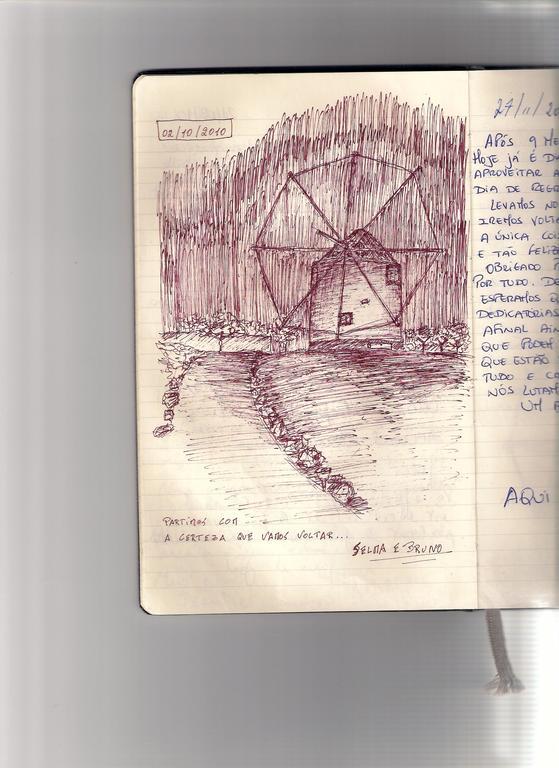 02/10/2010
PARTIMOS COM
A CERTEZA QUE VAMOS VOLTAR...
SELMA E BRUNO
24/11/20
APÓS 9 ME
HOJE JÁ É D
APROVEITAR A
DIA DE REGR
LEVAMOS NO
IREMOS VOLTA
A ÚNICA COI
E TÃO FELIZE
OBRIGADO P
POR TUDO. DE
ESPERAMOS Q
DEDICATÓRIAS
AFINAL AIN
QUE PODEM
QUE ESTÃO
TUDO E CO
NÓS LUTAM
UM A
AQUI